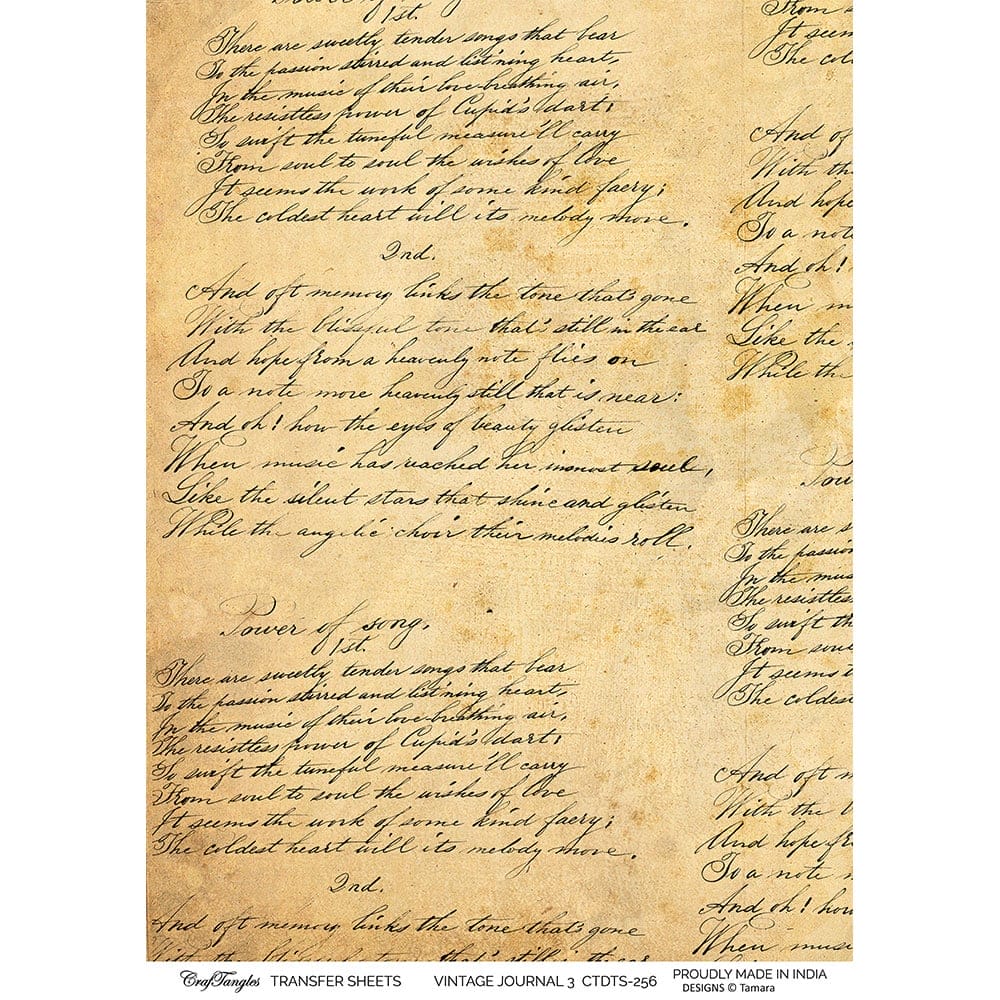 1st.
There are sweetly tender songs that bear
To the passion stirred and list'ning heart,
In the music of their love-breathing air,
The resistless power of Cupid's dart:
So swift the tuneful measure'll carry
From soul to soul the wishes of love
It seems the work of some kind faery;
The coldest heart will its melody move.
2nd.
And oft memory links the tone that's gone
With the blissful tone that's still in the ear
And hope from a heavenly note flies on
To a note more heavenly still that is near:
And oh! how the eyes of beauty glisten
When music has reached her inmost soul,
Like the silent stars that shine and glisten
While the angelic choir their melodies roll.
Power of song.
1st.
There are sweetly tender songs that bear
To the passion stirred and list'ning heart,
In the music of their love-breathing air,
The resistless power of Cupid's dart:
So swift the tuneful measure'll carry
From soul to soul the wishes of love
It seems the work of some kind faery;
The coldest heart will its melody move.
2nd.
And oft memory links the tone that's gone
From s
It seem
The col
And of
With th
And hope
To a note
And oh!
When m
Like the
While the
Pow
There are s
To the passion
In the mus
The resistless
So swift th
From soul
It seems t
The coldest
And oft m
With the b
And hope fr
To a note m
And oh! how
When music
CrafTangles TRANSFER SHEETS VINTAGE JOURNAL 3 CTDTS-256 PROUDLY MADE IN INDIA
DESIGNS © Tamara